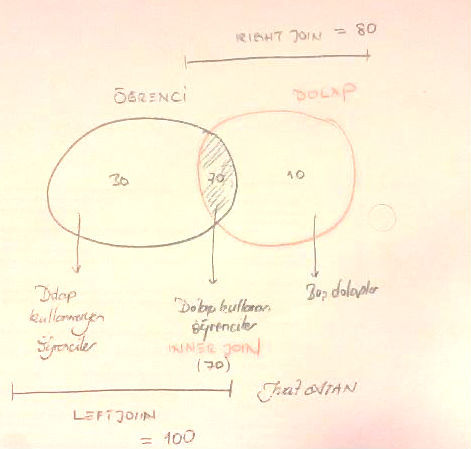 RIGHT JOIN = 80
ÖĞRENCİ
DOLAP
30
70
10
Dolap
kullanmayan
öğrenciler
Dolap kullanan
öğrenciler
INNER JOIN
(70)
Boş dolaplar
LEFT JOIN
= 100